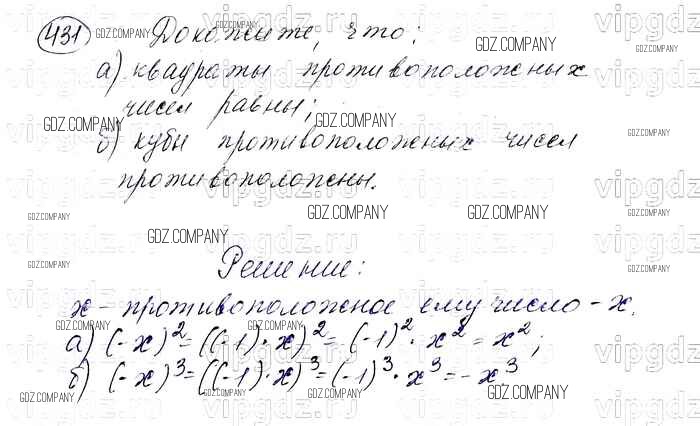 431 Докажите, что:
а) квадраты противоположных
чисел равны;
б) кубы противоположных чисел
противоположны.
Решение:
x - противоположное ему число - x.
а) (-x)² = ((-1)·x)² = (-1)²·x² = x²;
б) (-x)³ = ((-1)·x)³ = (-1)³·x³ = -x³
GDZ.COMPANY
vipgdz.ru